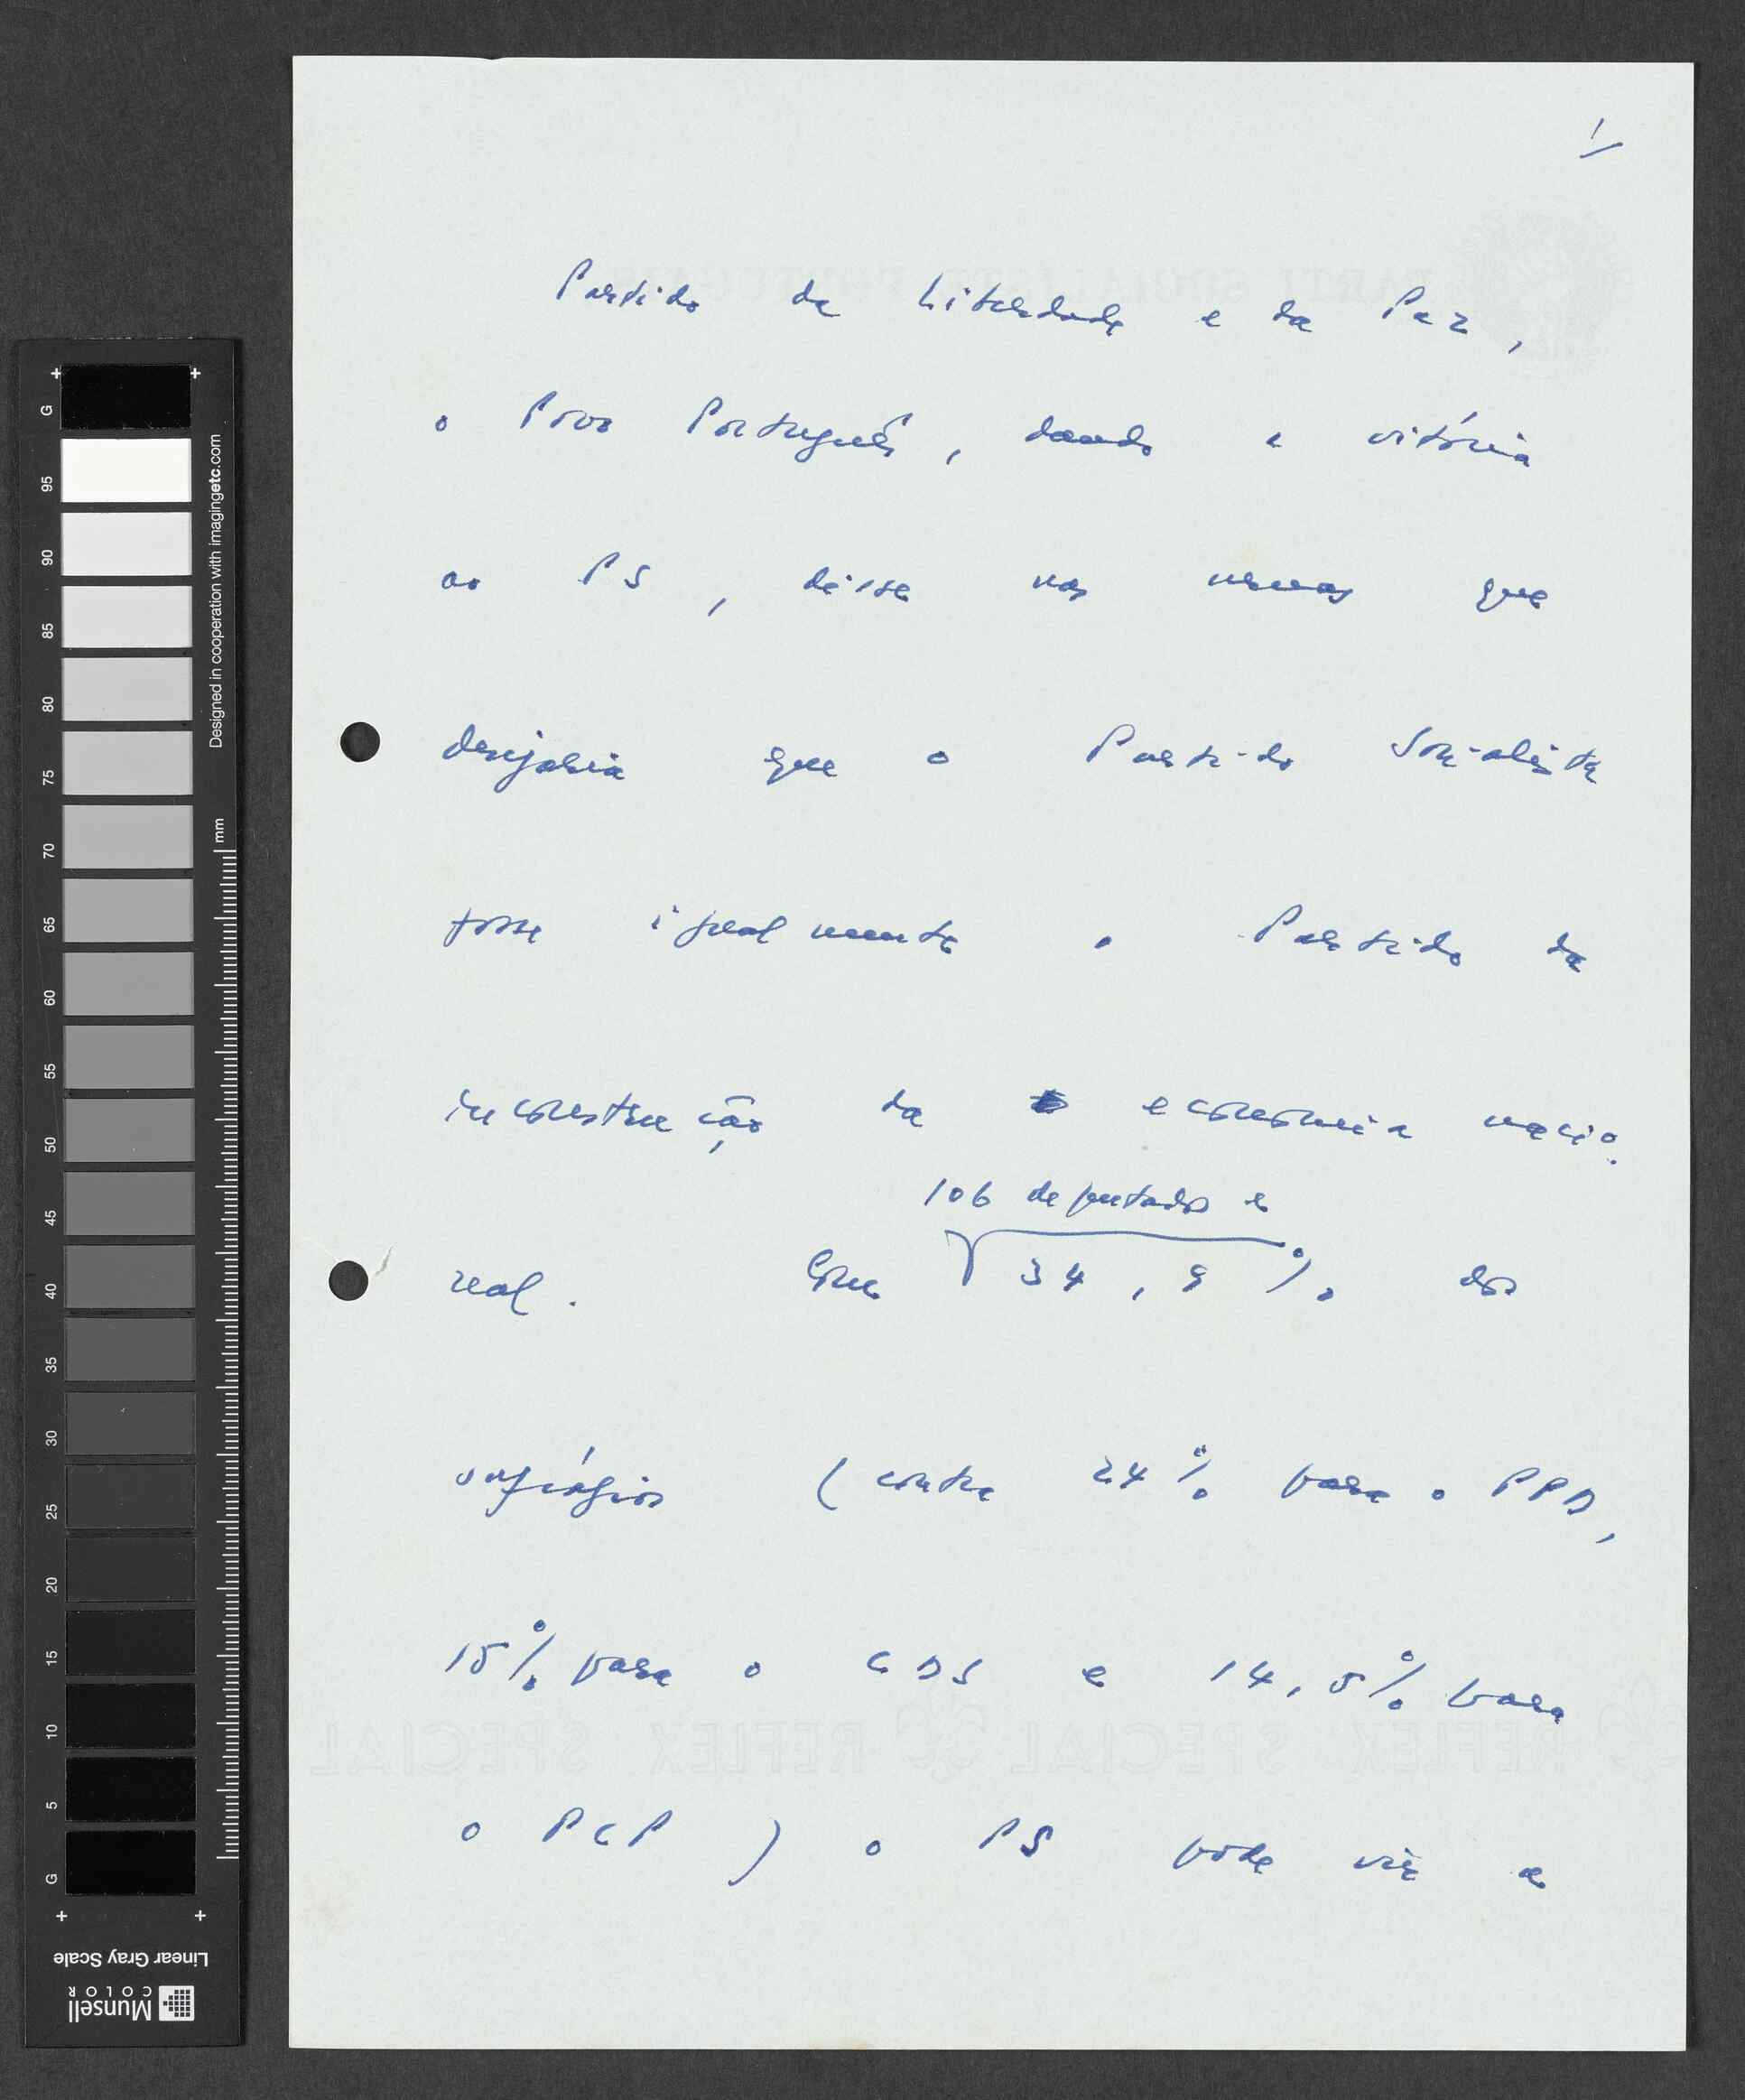 1/
Partido da Liberdade e da Paz,
o Povo Português, dando a vitória
ao PS, disse nas urnas que
desejaria que o Partido Socialista
fosse igualmente o Partido da
reconstrução da economia nacio-
106 deputados e
nal. Com 34,9% dos
sufrágios (contra 24% para o PPD,
15% para o CDS e 14,5% para
o PCP) o PS pode vir a
PARTI SOCIALISTE PORTUGAIS
REFLEX SPECIAL REFLEX SPECIAL
G 95 90 85 80 75 70 65 60 55 50 45 40 35 30 25 20 15 10 5 G
mm
Designed in cooperation with imagingetc.com
Linear Gray Scale
Munsell
COLOR